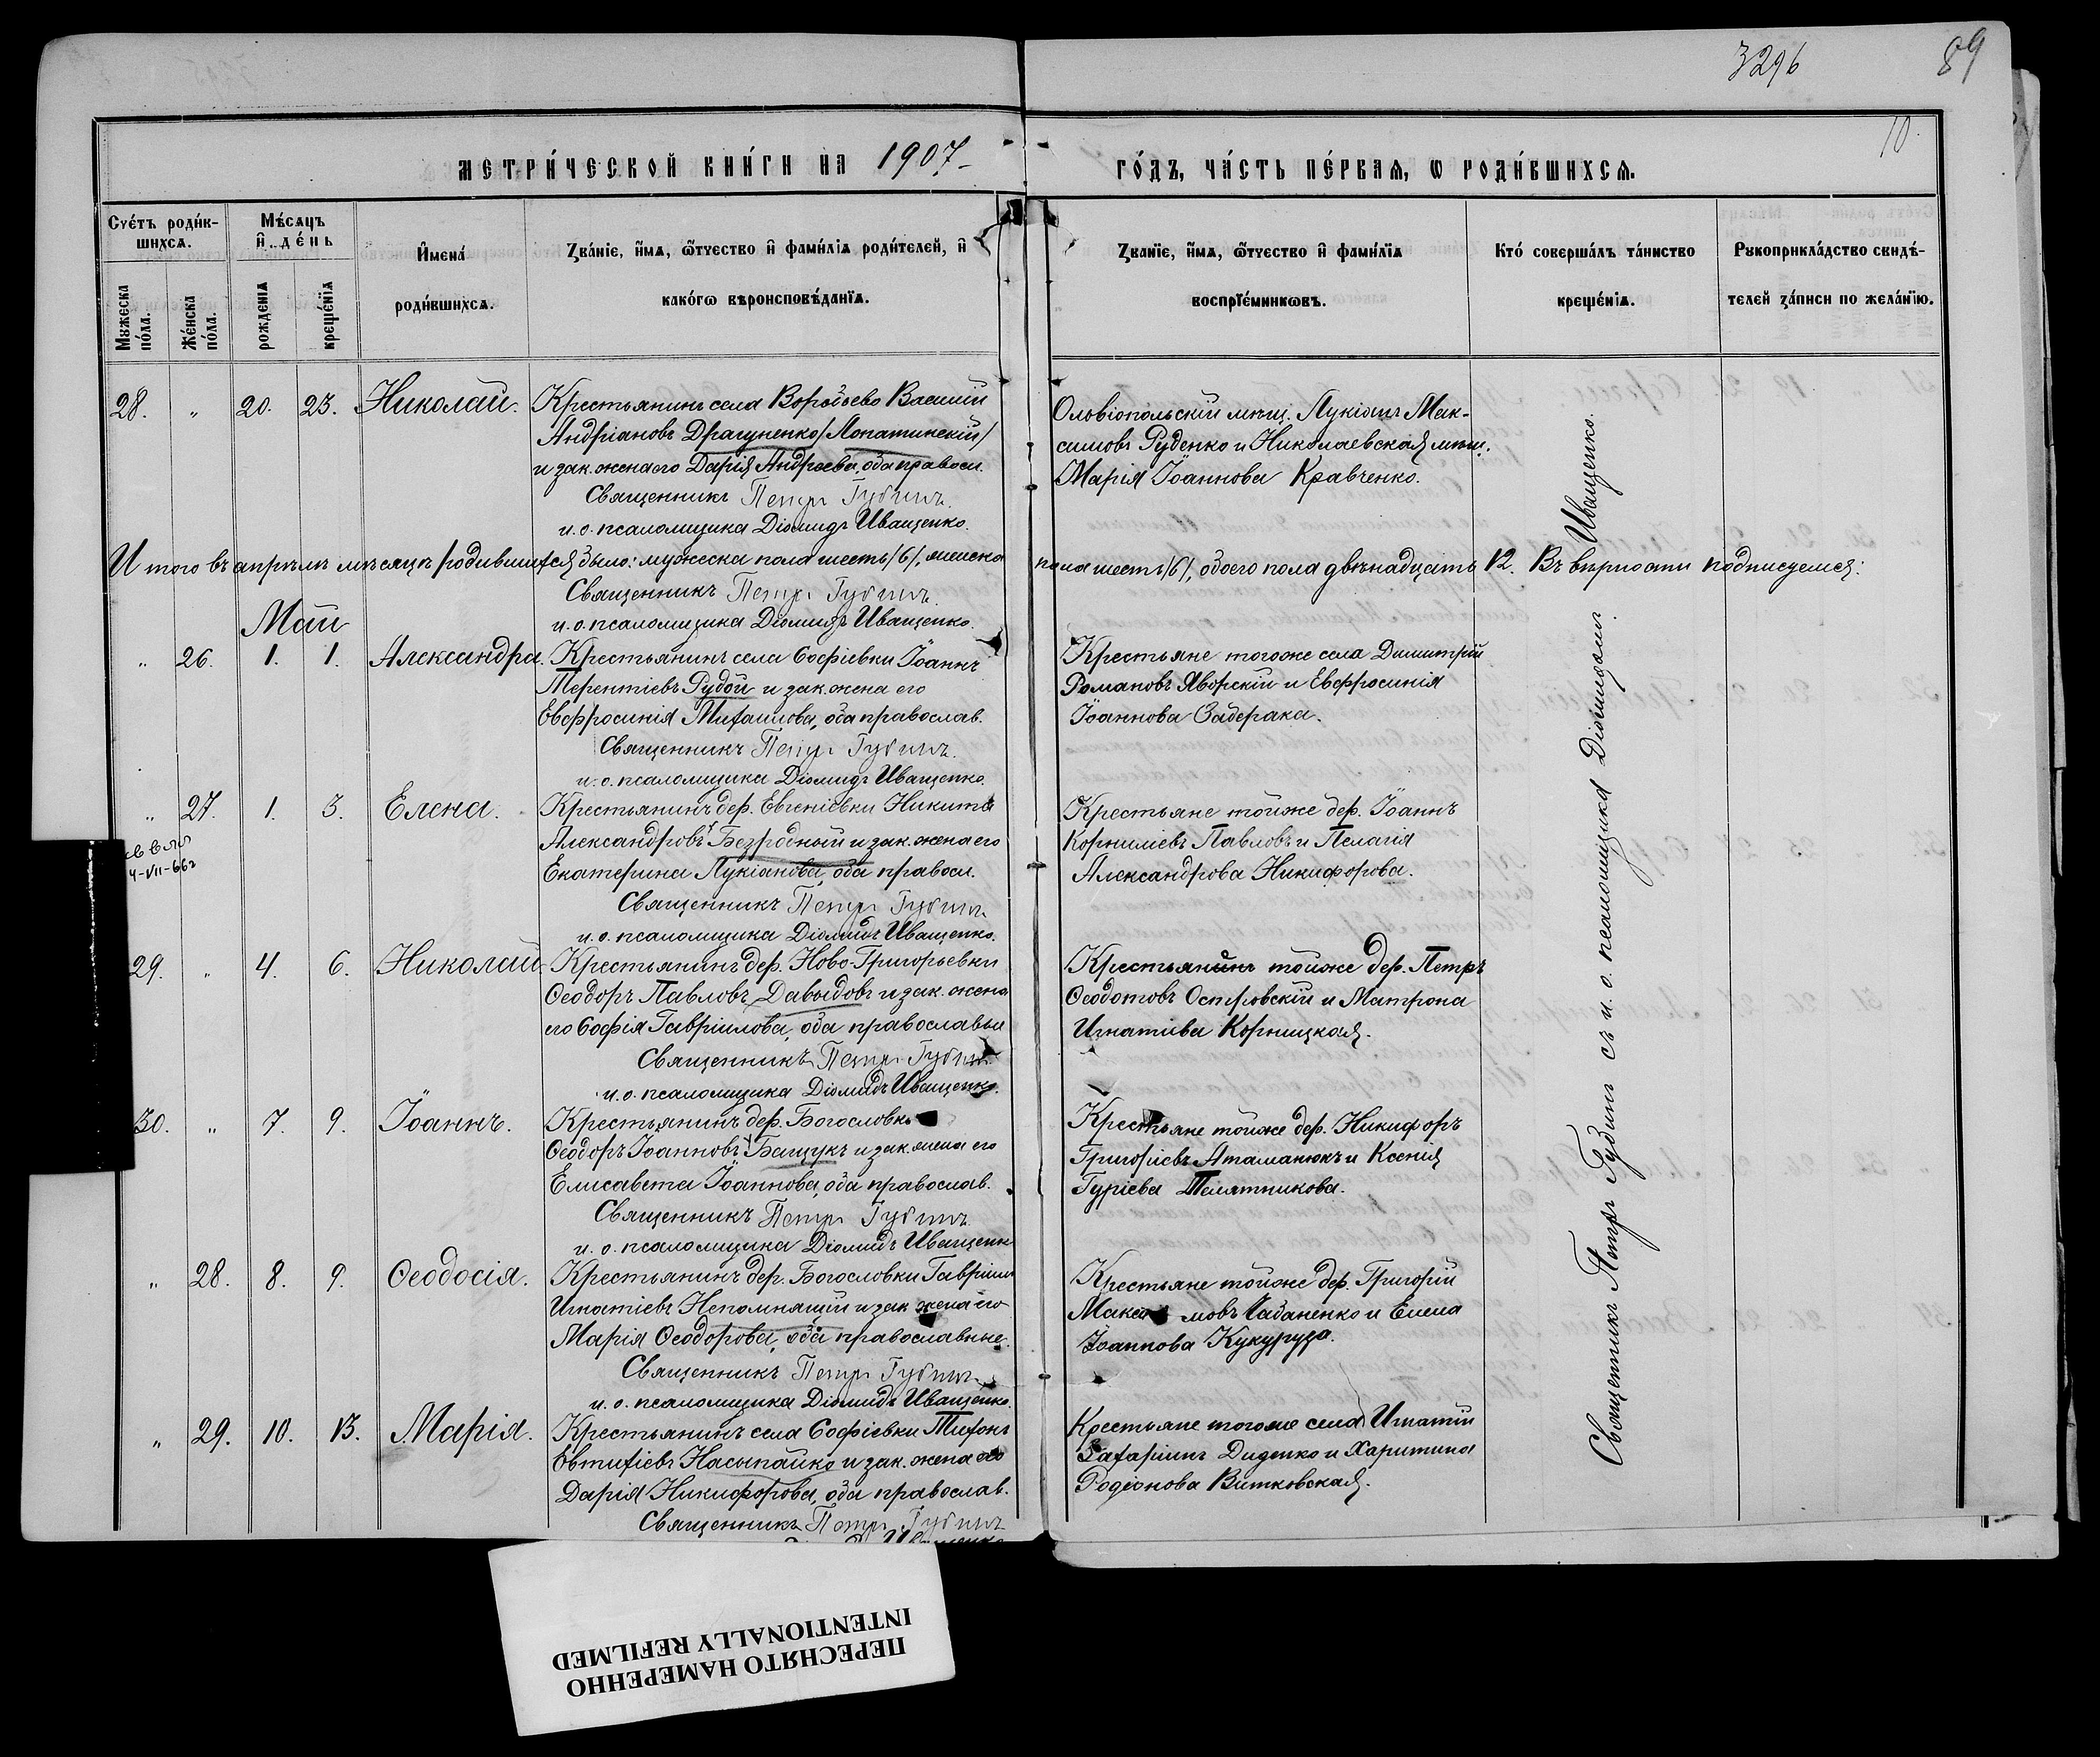 3296
89
10.
МЕТРИ́ЧЕСКОЙ КНИ́ГИ НА 1907 ГО́ДЪ, ЧА́СТЬ ПЕ́РВАЯ, Ѡ РОДИ́ВШИХСЯ.
Сче́тъ роди́вшихсѧ.
Мꙋжеска по́ла.
Же́нска по́ла.
Мѣ́сѧцъ и҆ де́нь
рожденїѧ
креще́нїѧ
И҆мена́ роди́вшихсѧ.
Зва́нїе, и҆́мѧ, ѻ҆́тчество и҆ фами́лїѧ роди́телей, и҆ како́гѡ вѣроисповѣ́данїѧ.
Зва́нїе, и҆́мѧ, ѻ҆́тчество и҆ фами́лїѧ воспрїе́мникѡвъ.
Кто́ соверша́лъ та́инство креще́нїѧ.
Рꙋкоприкла́дство свидѣ́телей за́писи по жела́нїю.
28. " 20. 23. Николай.
Крестьянинъ села Воробьево Василій
Андріановъ Драгуненко /Лопатинскій/
и зак. жена его Дарія Андреева, оба правосл.
Священникъ Петръ Губинъ.
и. о. псаломщика Діомидъ Иващенко.
Ольвіопольскій мѣщ. Лукіанъ Мак-
симовъ Руденко и Николаевская мѣщ.
Марія Іоаннова Кравченко.
Итого въ апрѣлѣ мѣсяцѣ родившихся было: мужеска пола шесть /6/, женска пола шесть /6/, обоего пола двѣнадцать 12. Въ вѣрности подписуемся:
Священникъ Петръ Губинъ.
и. о. псаломщика Діомидъ Иващенко.
Май
" 26. 1. 1. Александра.
Крестьянинъ села Софіевки Іоаннъ
Терентіевъ Рудой и зак. жена его
Евфросинія Михаилова, оба православ.
Священникъ Петръ Губинъ.
и. о. псаломщика Діомидъ Иващенко.
Крестьяне тогоже села Димитрій
Романовъ Яворскій и Евфросинія
Іоаннова Задерака.
" 27. 1. 3. Елена.
4-VII-66г
Крестьянинъ дер. Евгеніевки Никита
Александровъ Безродный и зак. жена его
Екатерина Лукіанова, оба правосл.
Священникъ Петръ Губинъ
и. о. псаломщика Діомидъ Иващенко.
Крестьяне тойже дер. Іоаннъ
Корниліевъ Павловъ и Пелагія
Александрова Никифорова.
29. " 4. 6. Николай
Крестьянинъ дер. Ново-Григорьевки
Ѳеодоръ Павловъ Давыдовъ и зак. жена
его Софія Гавріилова, оба православны
Священникъ Петръ Губинъ
и. о. псаломщика Діомидъ Иващенко.
Крестьянинъ тойже дер. Петръ
Ѳеодотовъ Островскій и Матрона
Игнатіева Корницкая.
30. " 7. 9. Іоаннъ.
Крестьянинъ дер. Богословк
Ѳеодоръ Іоанновъ Бащукъ и зак. жена его
Елисавета Іоаннова, оба православ.
Священникъ Петръ Губинъ
и. о. псаломщика Діомидъ Иващенк
Крестьяне тойже дер. Никифоръ
Григоріевъ Атаманюкъ и Ксенія
Гуріева Телятникова.
" 28. 8. 9. Ѳеодосія.
Крестьянинъ дер. Богословки Гавріилъ
Игнатіевъ Непомнящій и зак. жена его
Марія Ѳеодорова, оба православные.
Священникъ Петръ Губинъ
и. о. псаломщика Діомидъ Иващенко.
Крестьяне тойже дер. Григорій
Макси мовъ Чабаненко и Елена
Іоаннова Кукуруза.
" 29. 10. 13. Марія.
Крестьянинъ села Софіевки Тихонъ
Евтихіевъ Насыпайко и зак. жена его
Дарія Никифорова, оба православ.
Священникъ Петръ Губинъ
Иващенко
Крестьяне тогоже села Игнатій
Захаріинъ Диденко и Харитина
Родіонова Витковская.
Священникъ Петръ Губинъ съ и. о. псаломщика Діомидомъ Иващенко.
ПЕРЕСНЯТО НАМЕРЕННО
INTENTIONALLY REFILMED